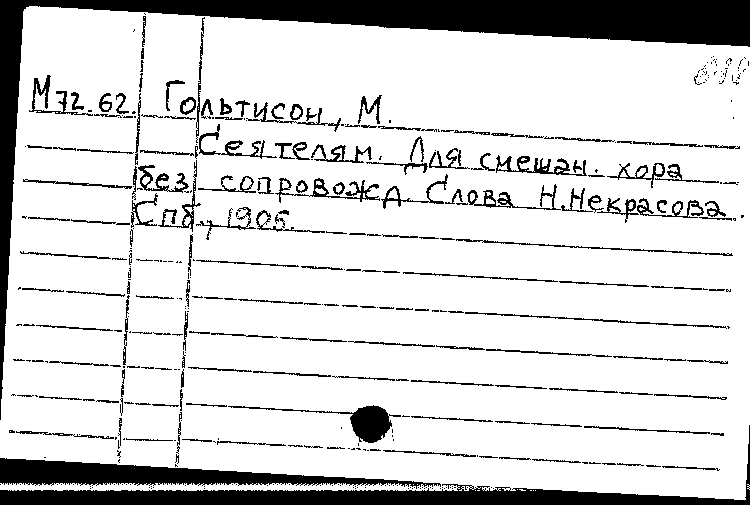 М72.62. Гольтисон, М.
Сеятелям. Для смешан. хора
без сопровожд. Слова Н.Некрасова.
Спб., 1905.